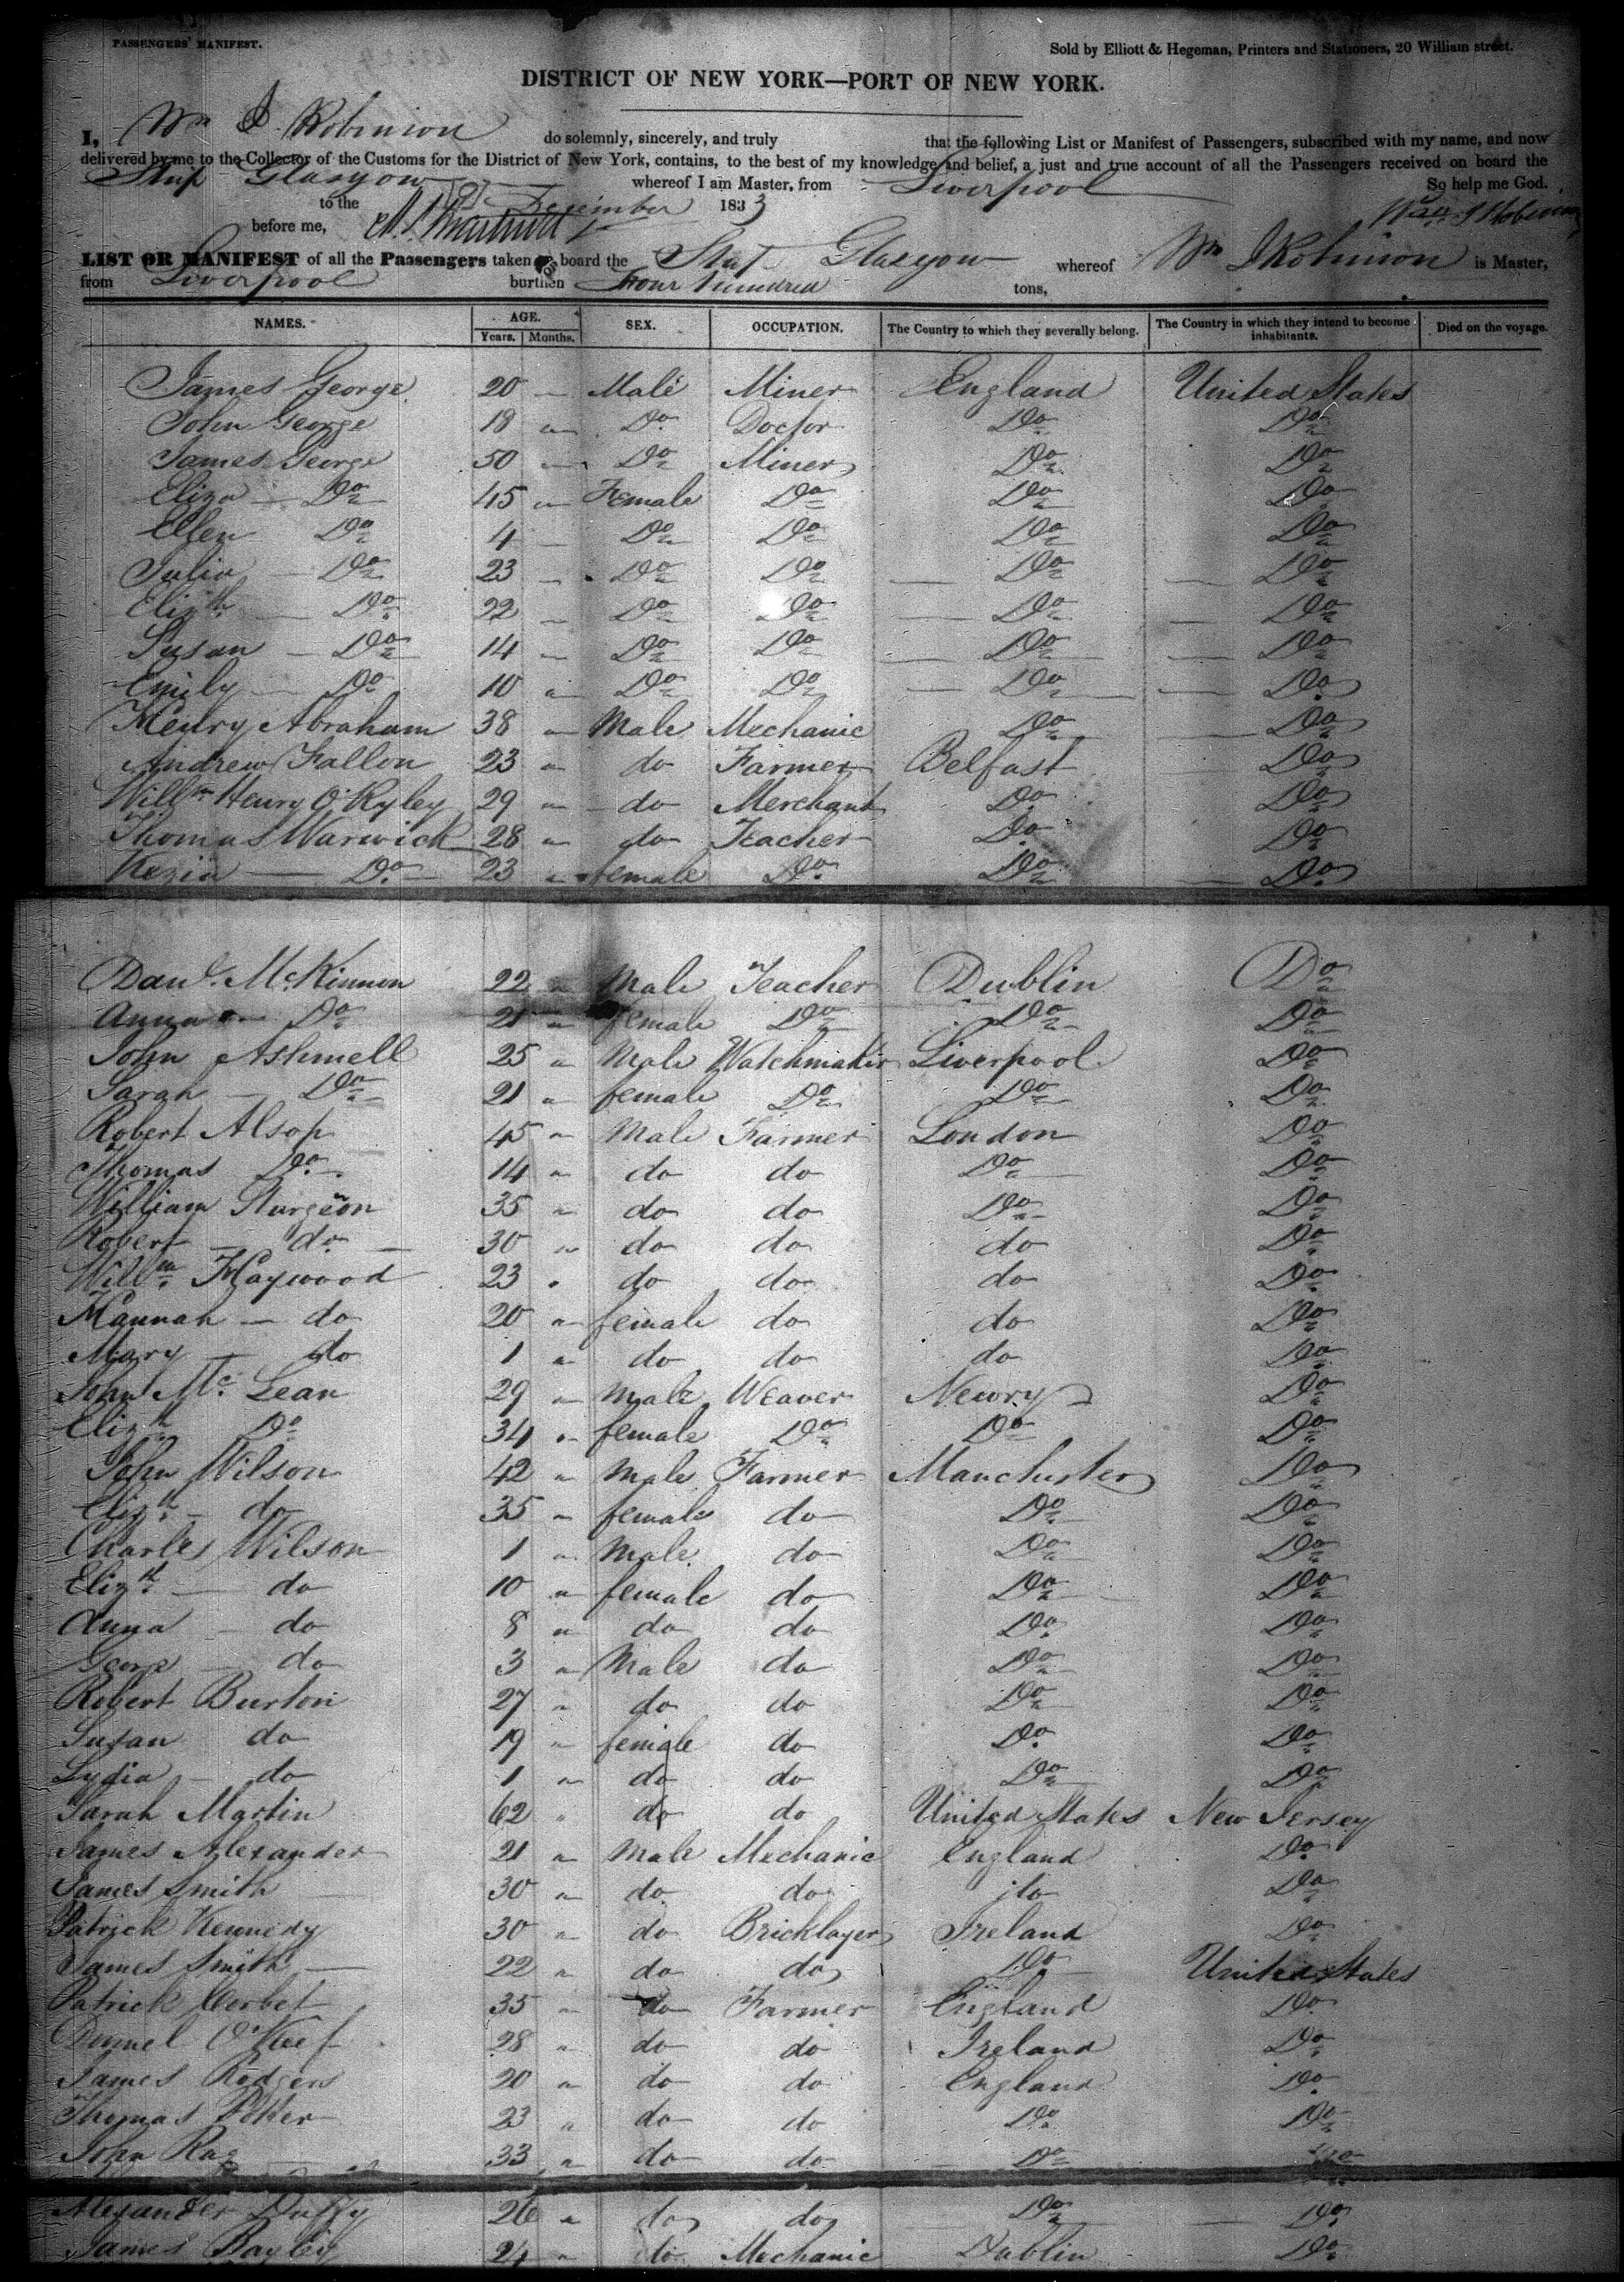 PASSENGERS' MANIFEST.
Sold by Elliott & Hegeman, Printers and Stationers, 20 William street.
DISTRICT OF NEW YORK—PORT OF NEW YORK.
I, Wm J. Robinson do solemnly, sincerely, and truly that the following List or Manifest of Passengers, subscribed with my name, and now
delivered by me to the Collector of the Customs for the District of New York, contains, to the best of my knowledge and belief, a just and true account of all the Passengers received on board the
Ship Glasgow whereof I am Master, from Liverpool So help me God.
to the December 1833
before me, Wm J Robinson
LIST OR MANIFEST of all the Passengers taken on board the Ship Glasgow whereof Wm J Robinson is Master,
from Liverpool burthen Four Hundred tons,
NAMES. AGE. SEX. OCCUPATION. The Country to which they severally belong. The Country in which they intend to become inhabitants. Died on the voyage.
Years. Months.
James George 20 Male Miner England United States
John George 18 Do Doctor Do Do
James George 50 Do Miner Do Do
Eliza Do 45 Female Do Do Do
Ellen Do 4 Do Do Do Do
Julia Do 23 Do Do Do Do
Elizth Do 22 Do Do Do Do
Susan Do 14 Do Do Do Do
Emily Do 10 Do Do Do Do
Henry Abraham 38 Male Mechanic Do Do
Andrew Fallon 23 do Farmer Belfast Do
Willm Henry O'Ryley 29 do Merchant Do Do
Thomas Warwick 28 do Teacher Do Do
Kezia Do 23 female Do Do Do
Danl. McKinnon 22 Male Teacher Dublin Do
Anna Do 21 female Do Do Do
John Ashmell 25 Male Watchmaker Liverpool Do
Sarah Do 21 female Do Do Do
Robert Alsop 45 Male Farmer London Do
Thomas Do 14 do do Do Do
William Sturgeon 35 do do Do Do
Robert do 30 do do do Do
Willm Haywood 23 do do do Do
Hannah do 20 female do do Do
Mary do 1 do do do Do
John Mc Lean 29 Male Weaver Newry Do
Elizth Do 34 female Do Do Do
John Wilson 42 Male Farmer Manchester Do
Elizth do 35 female do Do Do
Charles Wilson 1 Male do Do Do
Elizth do 10 female do Do Do
Anna do 8 do do Do Do
George do 3 Male do Do Do
Robert Burton 27 do do Do Do
Susan do 19 female do Do Do
Lydia do 1 do do Do Do
Sarah Martin 62 do do United States New Jersey
James Alexander 21 Male Mechanic England Do
James Smith 30 do do do Do
Patrick Kennedy 30 do Bricklayer Ireland Do
James Smith 22 do do Do United States
Patrick Corbet 35 do Farmer England Do
Daniel O'Keef 28 do do Ireland Do
James Rodgers 20 do do England Do
Thomas 23 do do Do Do
John Rae 33 do do Do Do
Alexander Duffy 26 do do Do Do
James Bayley 24 do Mechanic Dublin Do